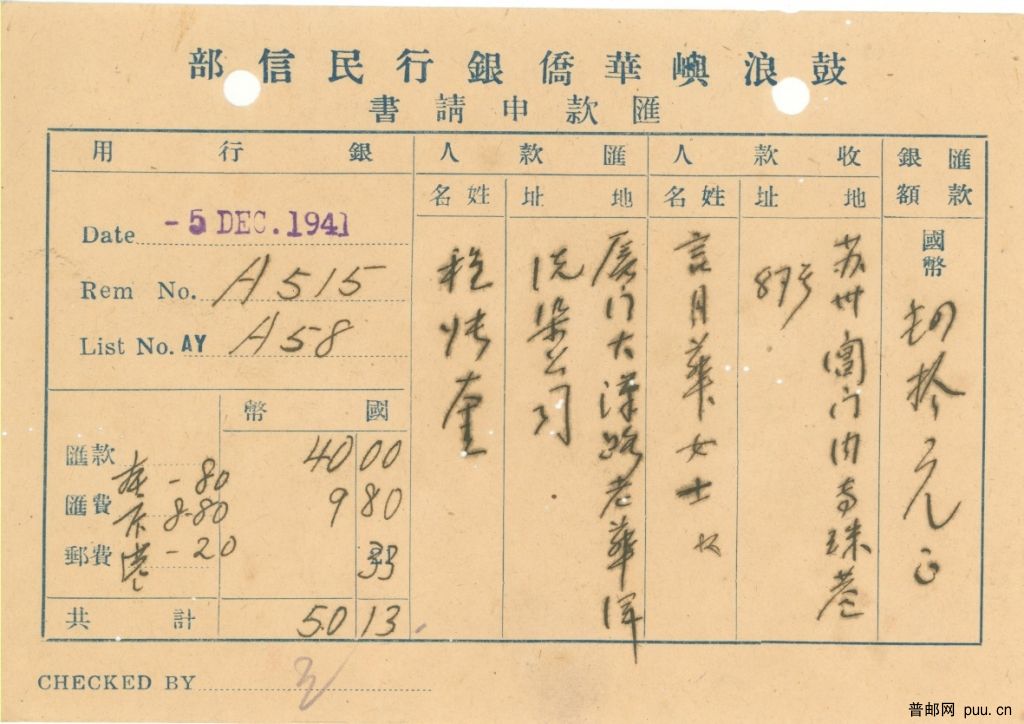 鼓浪嶼華僑銀行民信部
匯款申請書
匯款銀額
國幣
拾元正
收款人
地址
苏州閶门内
87号
姓名
言月華女士收
匯款人
地址
厦门大漢路老華洋
洗染公司
姓名
銀行用
Date -5 DEC. 1941
Rem No. A515
List No. AY A58
國幣
匯款 40 00
匯費 -80 8-80 9 80
郵費 -20 33
共計 50 13
CHECKED BY
普邮网 puu.cn